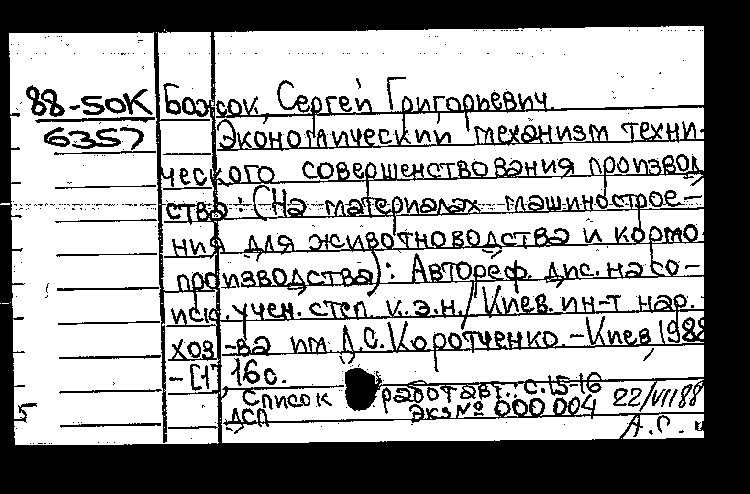 88-50К Божок, Сергей Григорьевич.
6357 Экономический механизм техни-
ческого совершенствования производ
ства: (На материалах машинострое-
ния для животноводства и кормо
производства): Автореф. дис. на со-
иск. учен. степ к.э.н./Киев. ин-т нар.
хоз-ва им Д.С. Коротченко.-Киев 1988
-[1], 16с.
Список работ авт.: с.15-16
ДСП Экз № 000 004 22/VII 88
5 А.С.